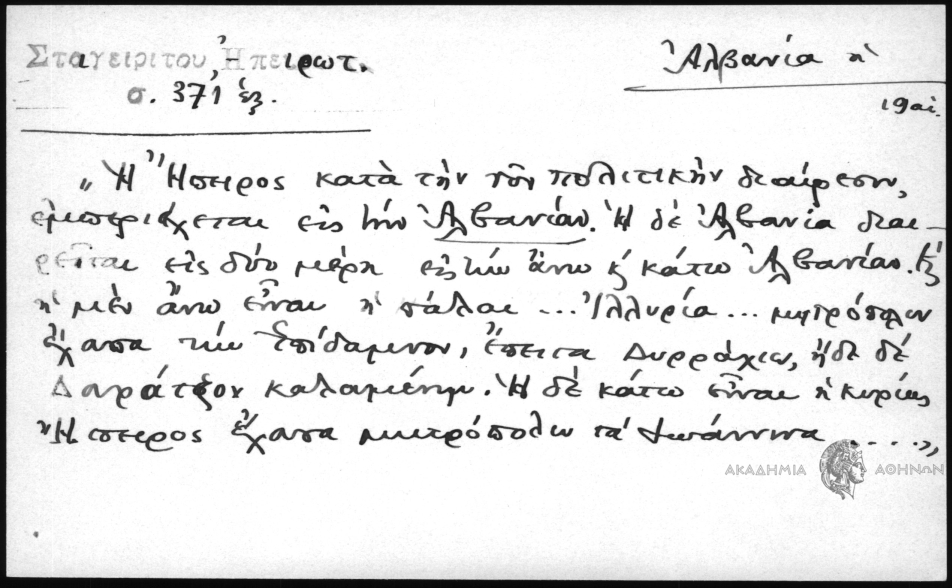 Σταγειρίτου, Ἠπειρωτ.
σ. 371 ἑξ.
Ἀλβανία ἡ
19 αἰ.
„Ἡ Ἤπειρος κατὰ τὴν νῦν πολιτικὴν διαίρεσιν,
ἐμπεριέχεται εἰς τὴν Ἀλβανίαν. Ἡ δὲ Ἀλβανία διαι-
ρεῖται εἰς δύο μέρη εἰς τὴν ἄνω κ̀ κάτω Ἀλβανίαν. Κ̀
ἡ μὲν ἄνω εἶναι ἡ πάλαι ... Ἰλλυρία ... μητρόπολιν
ἔχουσα τὴν Ἐπίδαμνον, ἔπειτα Δυρράχιον, ἤδη δὲ
καλουμένην. Ἡ δὲ κάτω εἶναι ἡ κυρίως
Ἤπειρος ἔχουσα μητρόπολιν τὰ Ἰωάννινα ....„
ΑΚΑΔΗΜΙΑ ΑΘΗΝΩΝ